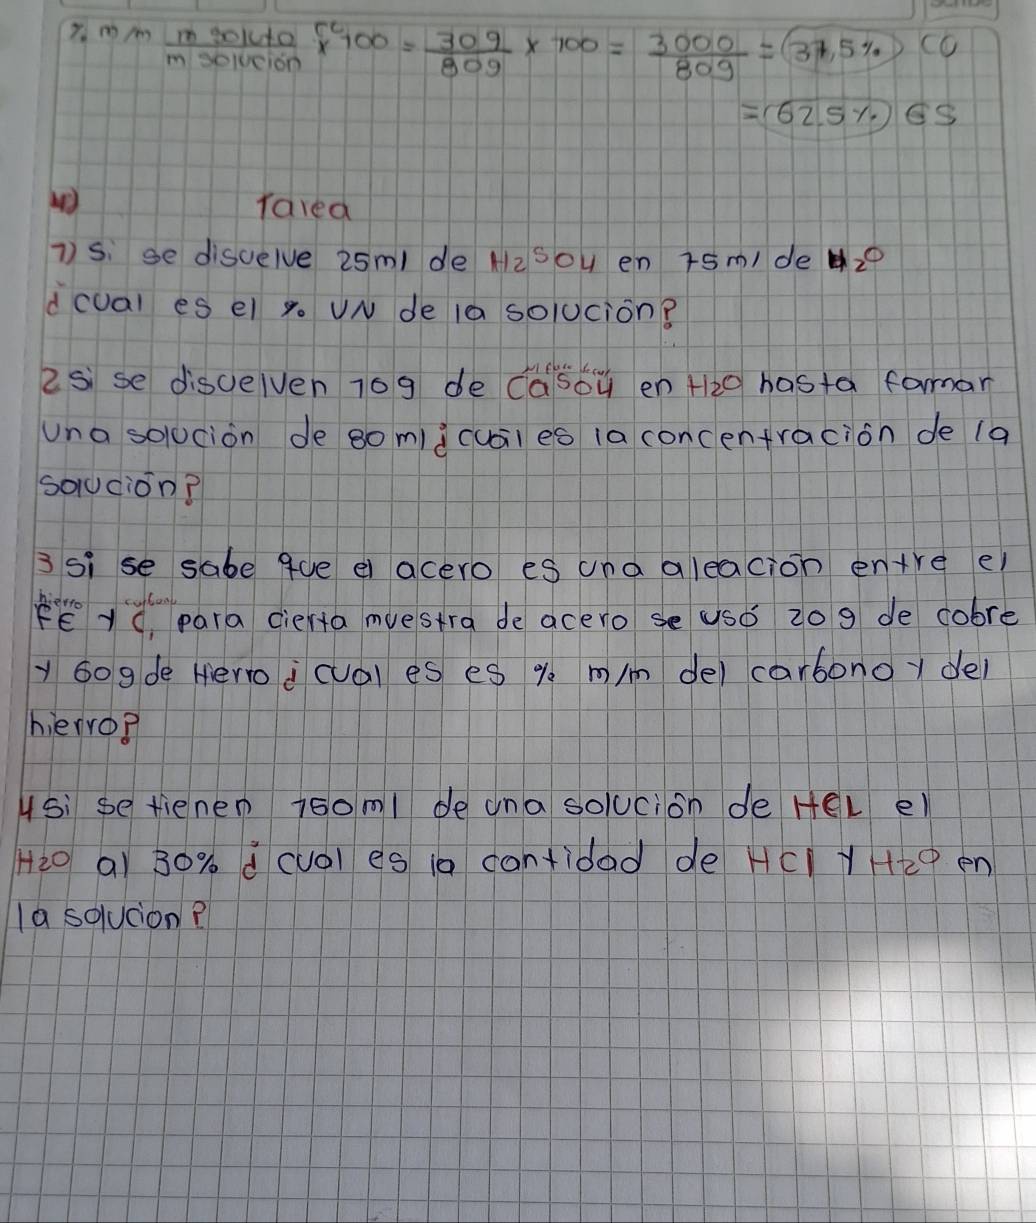 % m/m m soluto / m solución x 100 = 30g / 80g x 100 = 3000 / 80g = 37,5% CO
= 62.5% ES
Tarea
1) Si se disuelve 25ml de H2SO4 en 75ml de H2O
¿cual es el % VN de la solución?
2 si se disuelven 10g de CaSO4 en H2O hasta formar
una solución de 80ml ¿cuál es la concentración de la
solución?
3 si se sabe que el acero es una aleación entre el
hierro carbono
FE y C, para cierta muestra de acero se usó 20g de cobre
y 60g de Hierro ¿cual es es % m/m del carbono y del
hierro?
4 si se tienen 150ml de una solución de HCL el
H2O al 30% ¿cual es la cantidad de HCl y H2O en
la solucion?